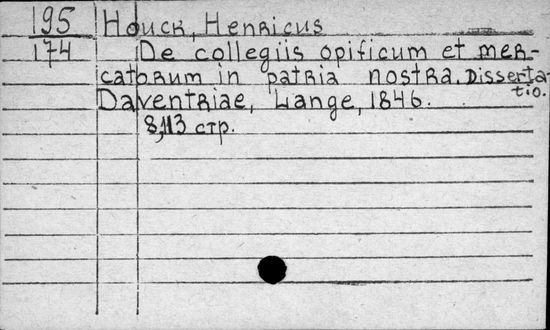 195 Houck, Henricus
174 De collegiis opificum et mer-
catorum in patria nostra. Disserta-
tio.
Daventriae, Lange, 1846.
8,113 стр.